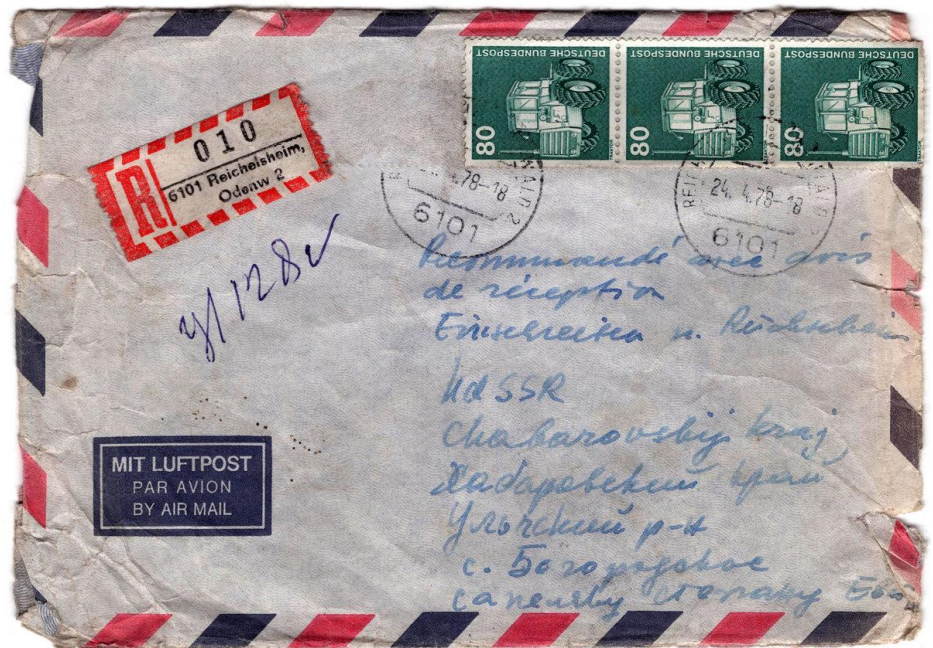 DEUTSCHE BUNDESPOST
80
DEUTSCHE BUNDESPOST
80
DEUTSCHE BUNDESPOST
80
R
010
6101 Reichelsheim,
Odenw 2
78-18
6101
24. 4.78-18
6101
128
Recommandé avec avis
de réception
Einschreiben u. Rückschein
UdSSR
Chabarovskij kraj
Хабаровский край
Ульчский р-н
с. Богородское
MIT LUFTPOST
PAR AVION
BY AIR MAIL